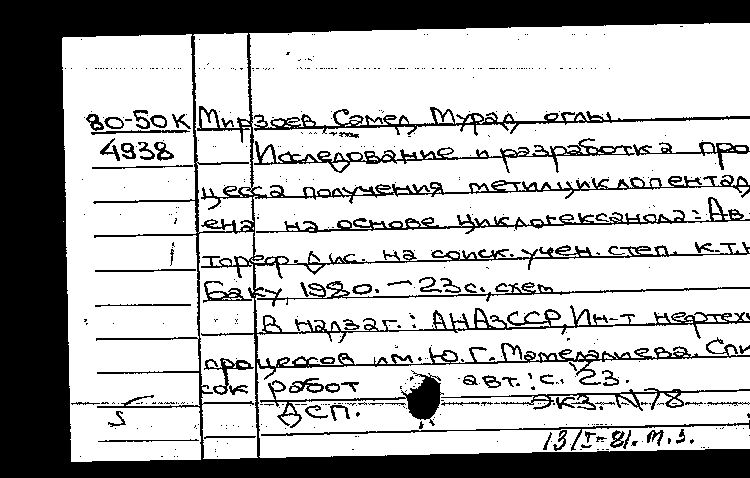 80-50К Мирзоев, Самед Мурад оглы.
4938 Исследование и разработка про
цесса получения метилциклопентад
иена на основе циклогексанола: Ав
тореф. дис. на соиск. учен. степ. к.т.н
Баку, 1980. - 23 с., схем
В надзаг.: АН АзССР, Ин-т нефтехи
процессов им. Ю.Г. Мамедалиева. Спи
сок работ авт.: с. 23.
ДСП. Экз. N78
5
13/I-81. т.з.